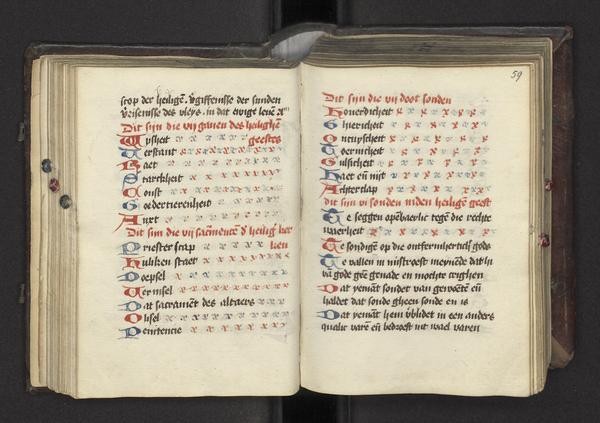 scop der heiligē. v̄giffenisse der sunden
v̄risenisse des vleys. in dat ewige leuē A
Dit sijn die vij gauen des heilighē
geestes
Wijsheit
Verstant
Raet
Starckheit
Const
Goedertierenheit
Anxt
Dit sijn die vij sacramente d' heilig' ker
ken
Priesterscap
Huliken staet
Doepsel
Vermsel
Dat sacramēt des altaers
Olisel
Penitencie
59
Dit sijn die vij doot sonden
Houerdicheit
Ghiericheit
Onkuyscheit
Toernicheit
Gulsicheit
Haet eñ nijt
Achterclap
Dit sijn vi sonden inden heiligē geest
Te seggen opēbaerlic tegē die rechte
waerheit
Te sondigē op die ontfermherticheit gods
Te vallen in mistroest meynēde dat hi
van gode gheē genade en mochte crighen
Dat yemāt sondet van gewoēte eñ
haldet dat sonde gheen sonde en is
Dat yemāt hem v̄blidet in een anders
qualic varē eñ bedroeft int wael varen